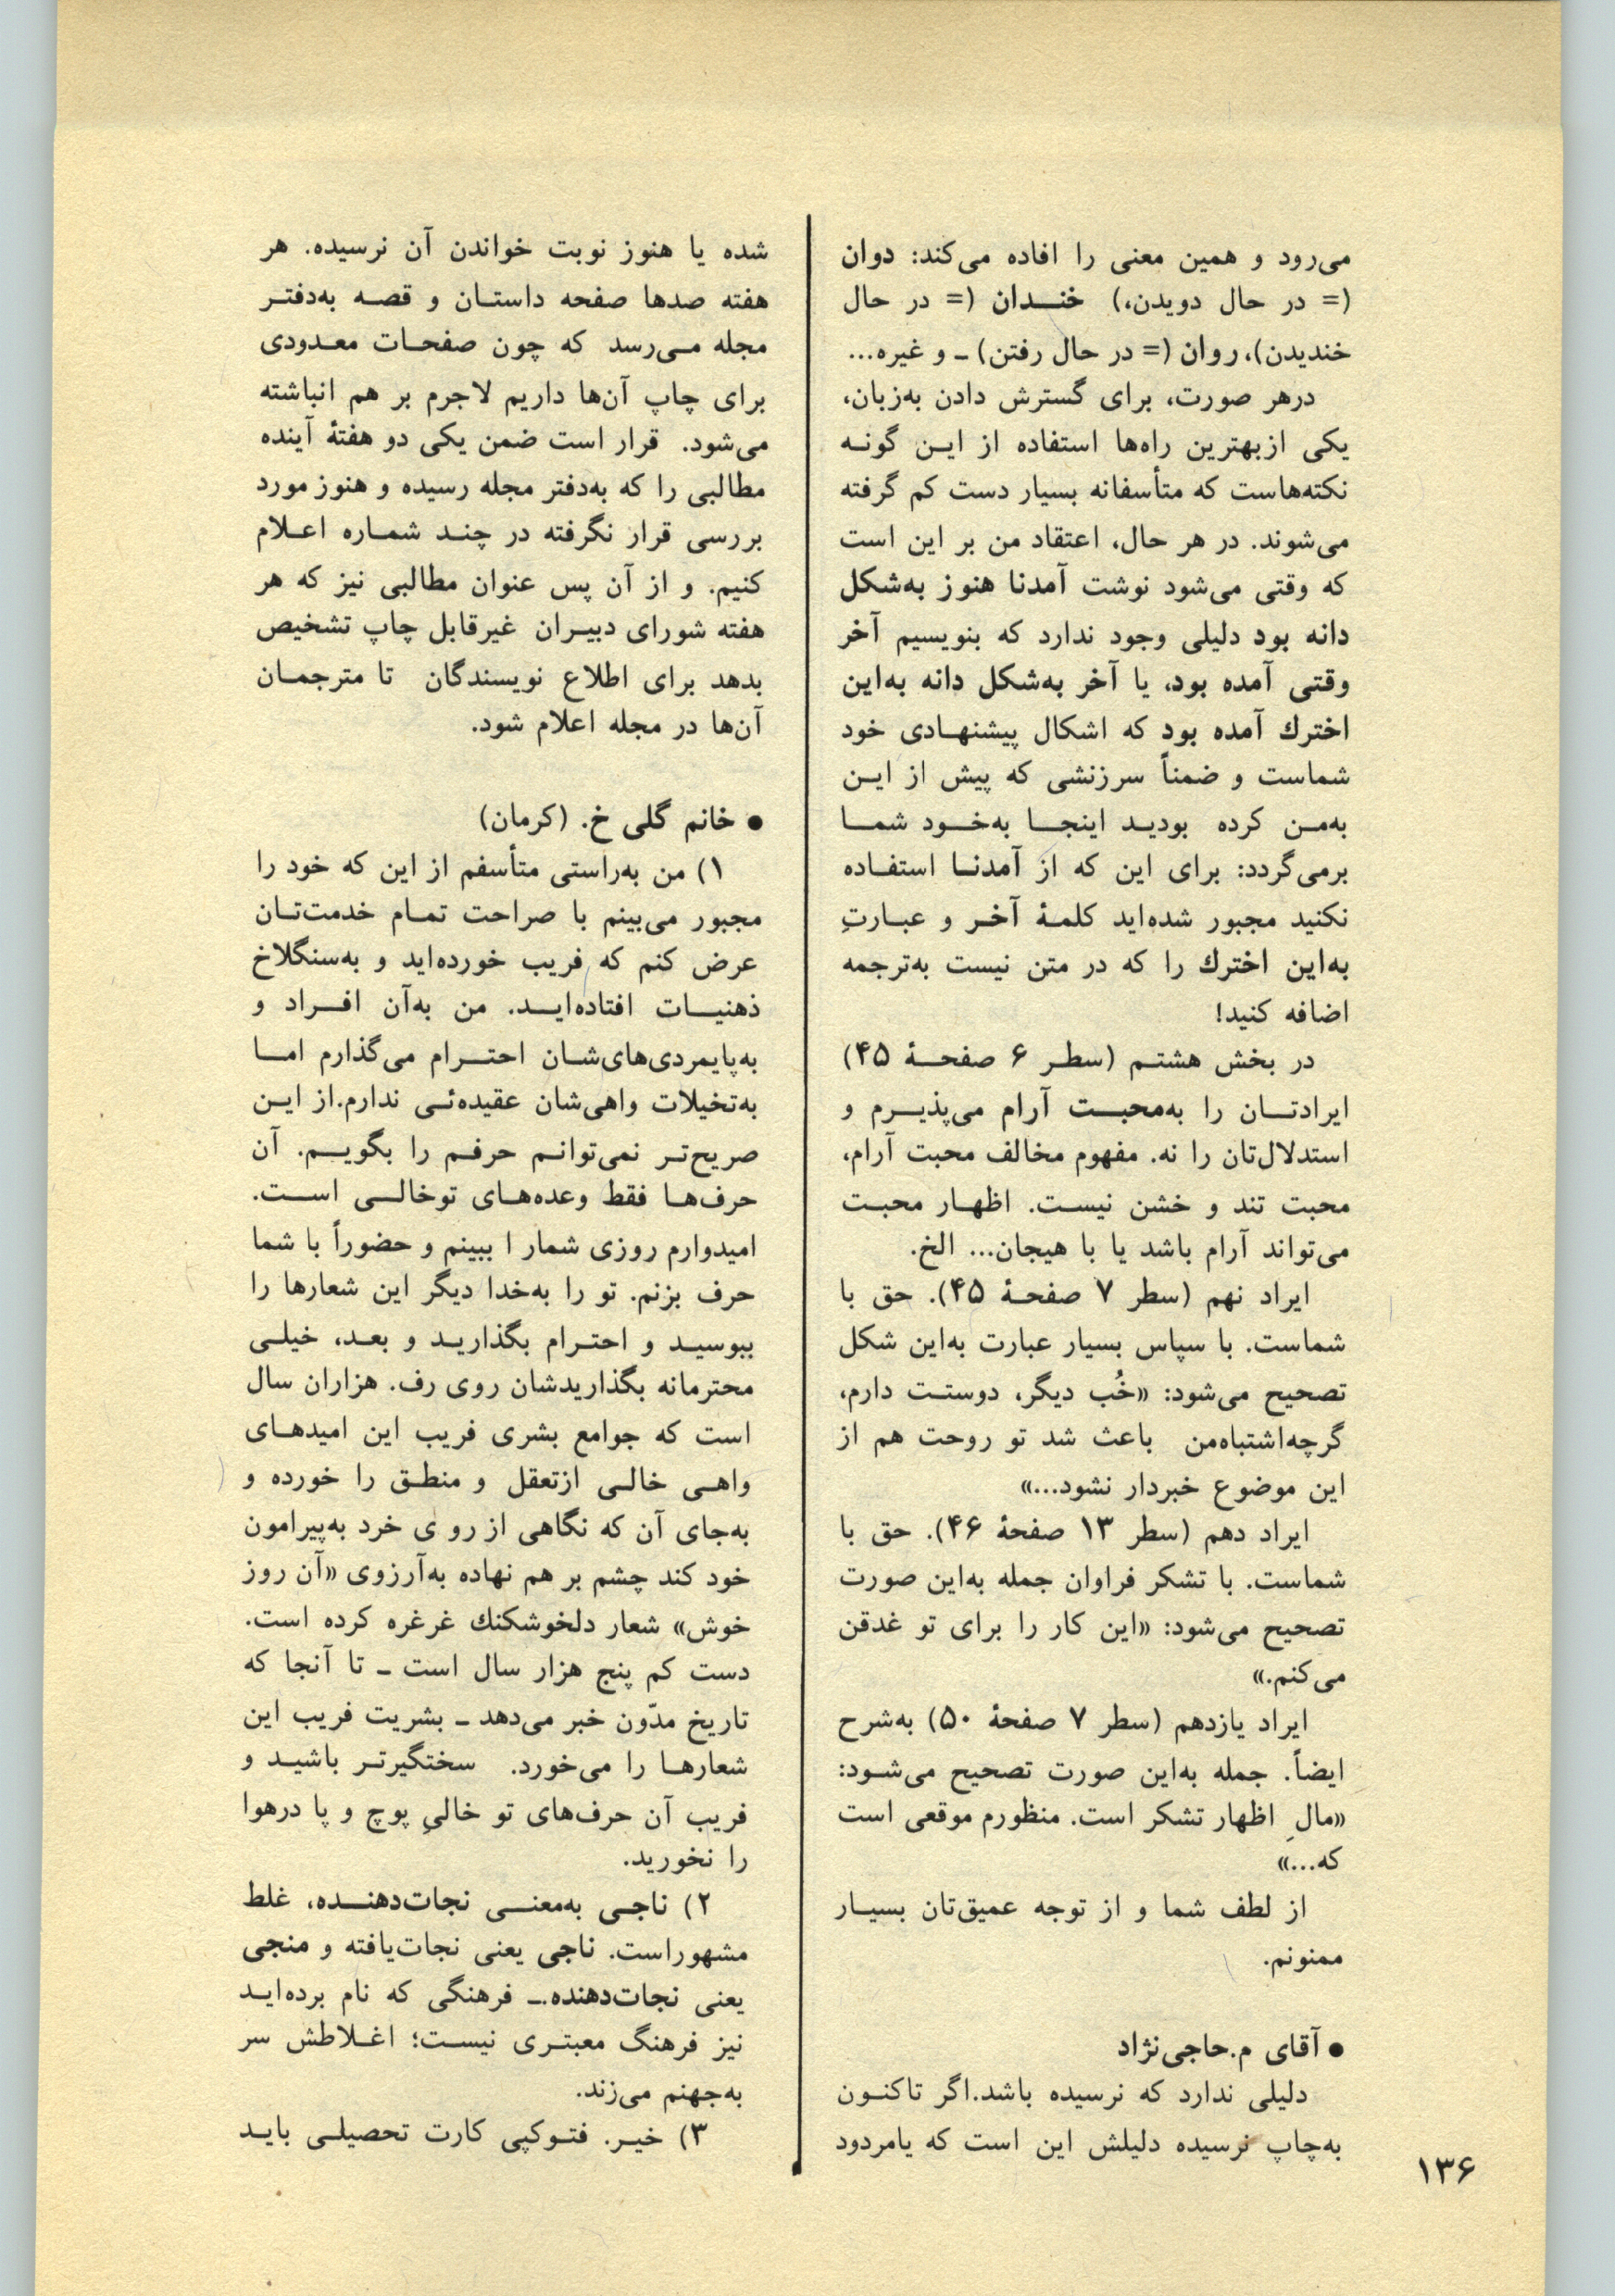 می‌رود و همین معنی را افاده می‌کند: دوان
(= در حال دویدن،) خنـــدان (= در حال
خندیدن)، روان (= در حال رفتن) ـ و غیره...
درهر صورت، برای گسترش دادن به‌زبان،
یکی ازبهترین راه‌ها استفاده از ایـن گونـه
نکته‌هاست که متأسفانه بسیار دست کم گرفته
می‌شوند. در هر حال، اعتقاد من بر این است
که وقتی می‌شود نوشت آمدنا هنوز به‌شکل
دانه بود دلیلی وجود ندارد که بنویسیم آخر
وقتی آمده بود، یا آخر به‌شکل دانه به‌این
اخترك آمده بود که اشکال پیشنهـادی خود
شماست و ضمناً سرزنشی که پیش از ایـن
به‌مـن کرده بودیـد اینجـا به‌خـود شمـا
برمی‌گردد: برای این که از آمدنـا استفـاده
نکنید مجبور شده‌اید کلمـۀ آخـر و عبـارتِ
به‌این اخترك را که در متن نیست به‌ترجمه
اضافه کنید!
در بخش هشتـم (سطـر ۶ صفحـۀ ۴۵)
ایرادتـان را به‌محبـت آرام می‌پذیـرم و
استدلال‌تان را نه. مفهوم مخالف محبت آرام،
محبت تند و خشن نیسـت. اظهـار محبـت
می‌تواند آرام باشد یا با هیجان... الخ.
ایراد نهم (سطر ۷ صفحـۀ ۴۵). حق با
شماست. با سپاس بسیار عبارت به‌این شکل
تصحیح می‌شود: «خُب دیگر، دوستـت دارم،
گرچه‌اشتباه‌من باعث شد تو روحت هم از
این موضوع خبردار نشود...»
ایراد دهم (سطر ۱۳ صفحۀ ۴۶). حق با
شماست. با تشکر فراوان جمله به‌این صورت
تصحیح می‌شود: «این کار را برای تو غدقن
می‌کنم.»
ایراد یازدهم (سطر ۷ صفحۀ ۵۰) به‌شرح
ایضاً. جمله به‌این صورت تصحیح می‌شـود:
«مالِ اظهار تشکر است. منظورم موقعی است
که...»
از لطف شما و از توجه عمیق‌تان بسیـار
ممنونم.
● آقای م.حاجی‌نژاد
دلیلی ندارد که نرسیده باشد.اگر تاکنـون
به‌چاپ نرسیده دلیلش این است که یامردود
شده یا هنوز نوبت خواندن آن نرسیده. هر
هفته صدها صفحه داستـان و قصـه به‌دفتـر
مجله مـی‌رسد که چون صفحـات معـدودی
برای چاپ آن‌ها داریم لاجرم بر هم انباشته
می‌شود. قرار است ضمن یکی دو هفتۀ آینده
مطالبی را که به‌دفتر مجله رسیده و هنوز مورد
بررسی قرار نگرفته در چنـد شمـاره اعـلام
کنیم. و از آن پس عنوان مطالبی نیز که هر
هفته شورای دبیـران غیرقابل چاپ تشخیص
بدهد برای اطلاع نویسندگان تا مترجمـان
آن‌ها در مجله اعلام شود.
● خانم گلی خ. (کرمان)
۱) من به‌راستی متأسفم از این که خود را
مجبور می‌بینم با صراحت تمـام خدمت‌تـان
عرض کنم که فریب خورده‌اید و به‌سنگلاخ
ذهنیـات افتاده‌ایـد. من به‌آن افـراد و
به‌پایمردی‌های‌شـان احتـرام می‌گذارم امـا
به‌تخیلات واهی‌شان عقیده‌ئـی ندارم.از ایـن
صریح‌تـر نمی‌توانـم حرفـم را بگویـم. آن
حرف‌هـا فقط وعده‌هـای توخالـی اسـت.
امیدوارم روزی شمار ا ببینم و حضوراً با شما
حرف بزنم. تو را به‌خدا دیگر این شعارها را
ببوسیـد و احتـرام بگذاریـد و بعـد، خیلـی
محترمانه بگذاریدشان روی رف. هزاران سال
است که جوامع بشری فریب این امیدهـای
واهـی خالـی ازتعقل و منطـق را خورده و
به‌جای آن که نگاهی از رو ی خرد به‌پیرامون
خود کند چشم بر هم نهاده به‌آرزوی «آن روز
خوش» شعار دلخوشکنك غرغره کرده است.
دست کم پنج هزار سال است ـ تا آنجا که
تاریخ مدّون خبر می‌دهد ـ بشریت فریب این
شعارهـا را می‌خورد. سختگیرتـر باشیـد و
فریب آن حرف‌های تو خالیِ پوچ و پا درهوا
را نخورید.
۲) ناجـی به‌معنـی نجات‌دهنـده، غلط
مشهوراست. ناجی یعنی نجات‌یافته و منجی
یعنی نجات‌دهنده.ـ فرهنگی که نام برده‌ایـد
نیز فرهنگ معبتـری نیسـت؛ اغـلاطش سر
به‌جهنم می‌زند.
۳) خیـر. فتـوکپی کارت تحصیلـی بایـد
۱۳۶